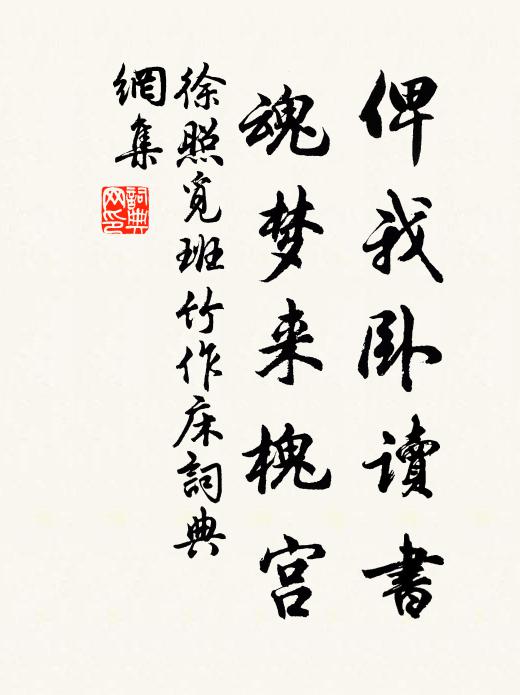 俾我卧讀書
魂梦来槐宫
徐照覓班竹作床詞典
網集
詞典网印